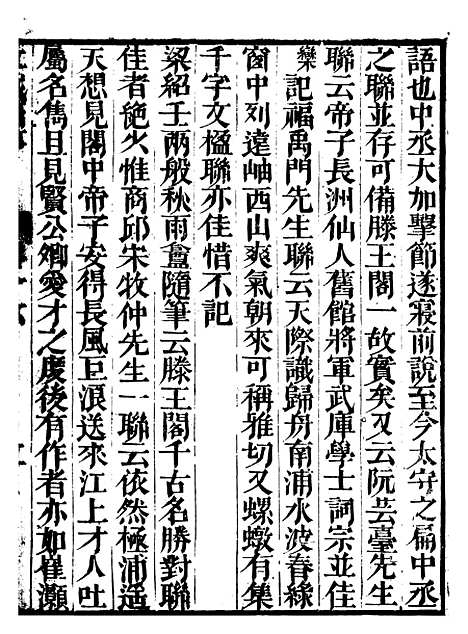 語也中丞大加擊節遂寢前說至今太守之扁中丞
之聯並存可備滕王閣一故實矣又云阮芸臺先生
聯云帝子長洲仙人舊館將軍武庫學士詞宗並佳
欒記福禹門先生聯云天際識歸舟南浦水波春綠
窗中列遠岫西山爽氣朝來可稱雅切又螺墩有集
千字文楹聯亦佳惜不記
梁紹壬兩般秋雨盦隨筆云滕王閣千古名勝對聯
佳者絶少惟商邱宋牧仲先生一聯云依然極浦遥
天想見閣中帝子安得長風巨浪送來江上才人吐
屬名雋且見賢公卿愛才之度後有作者亦如崔灝